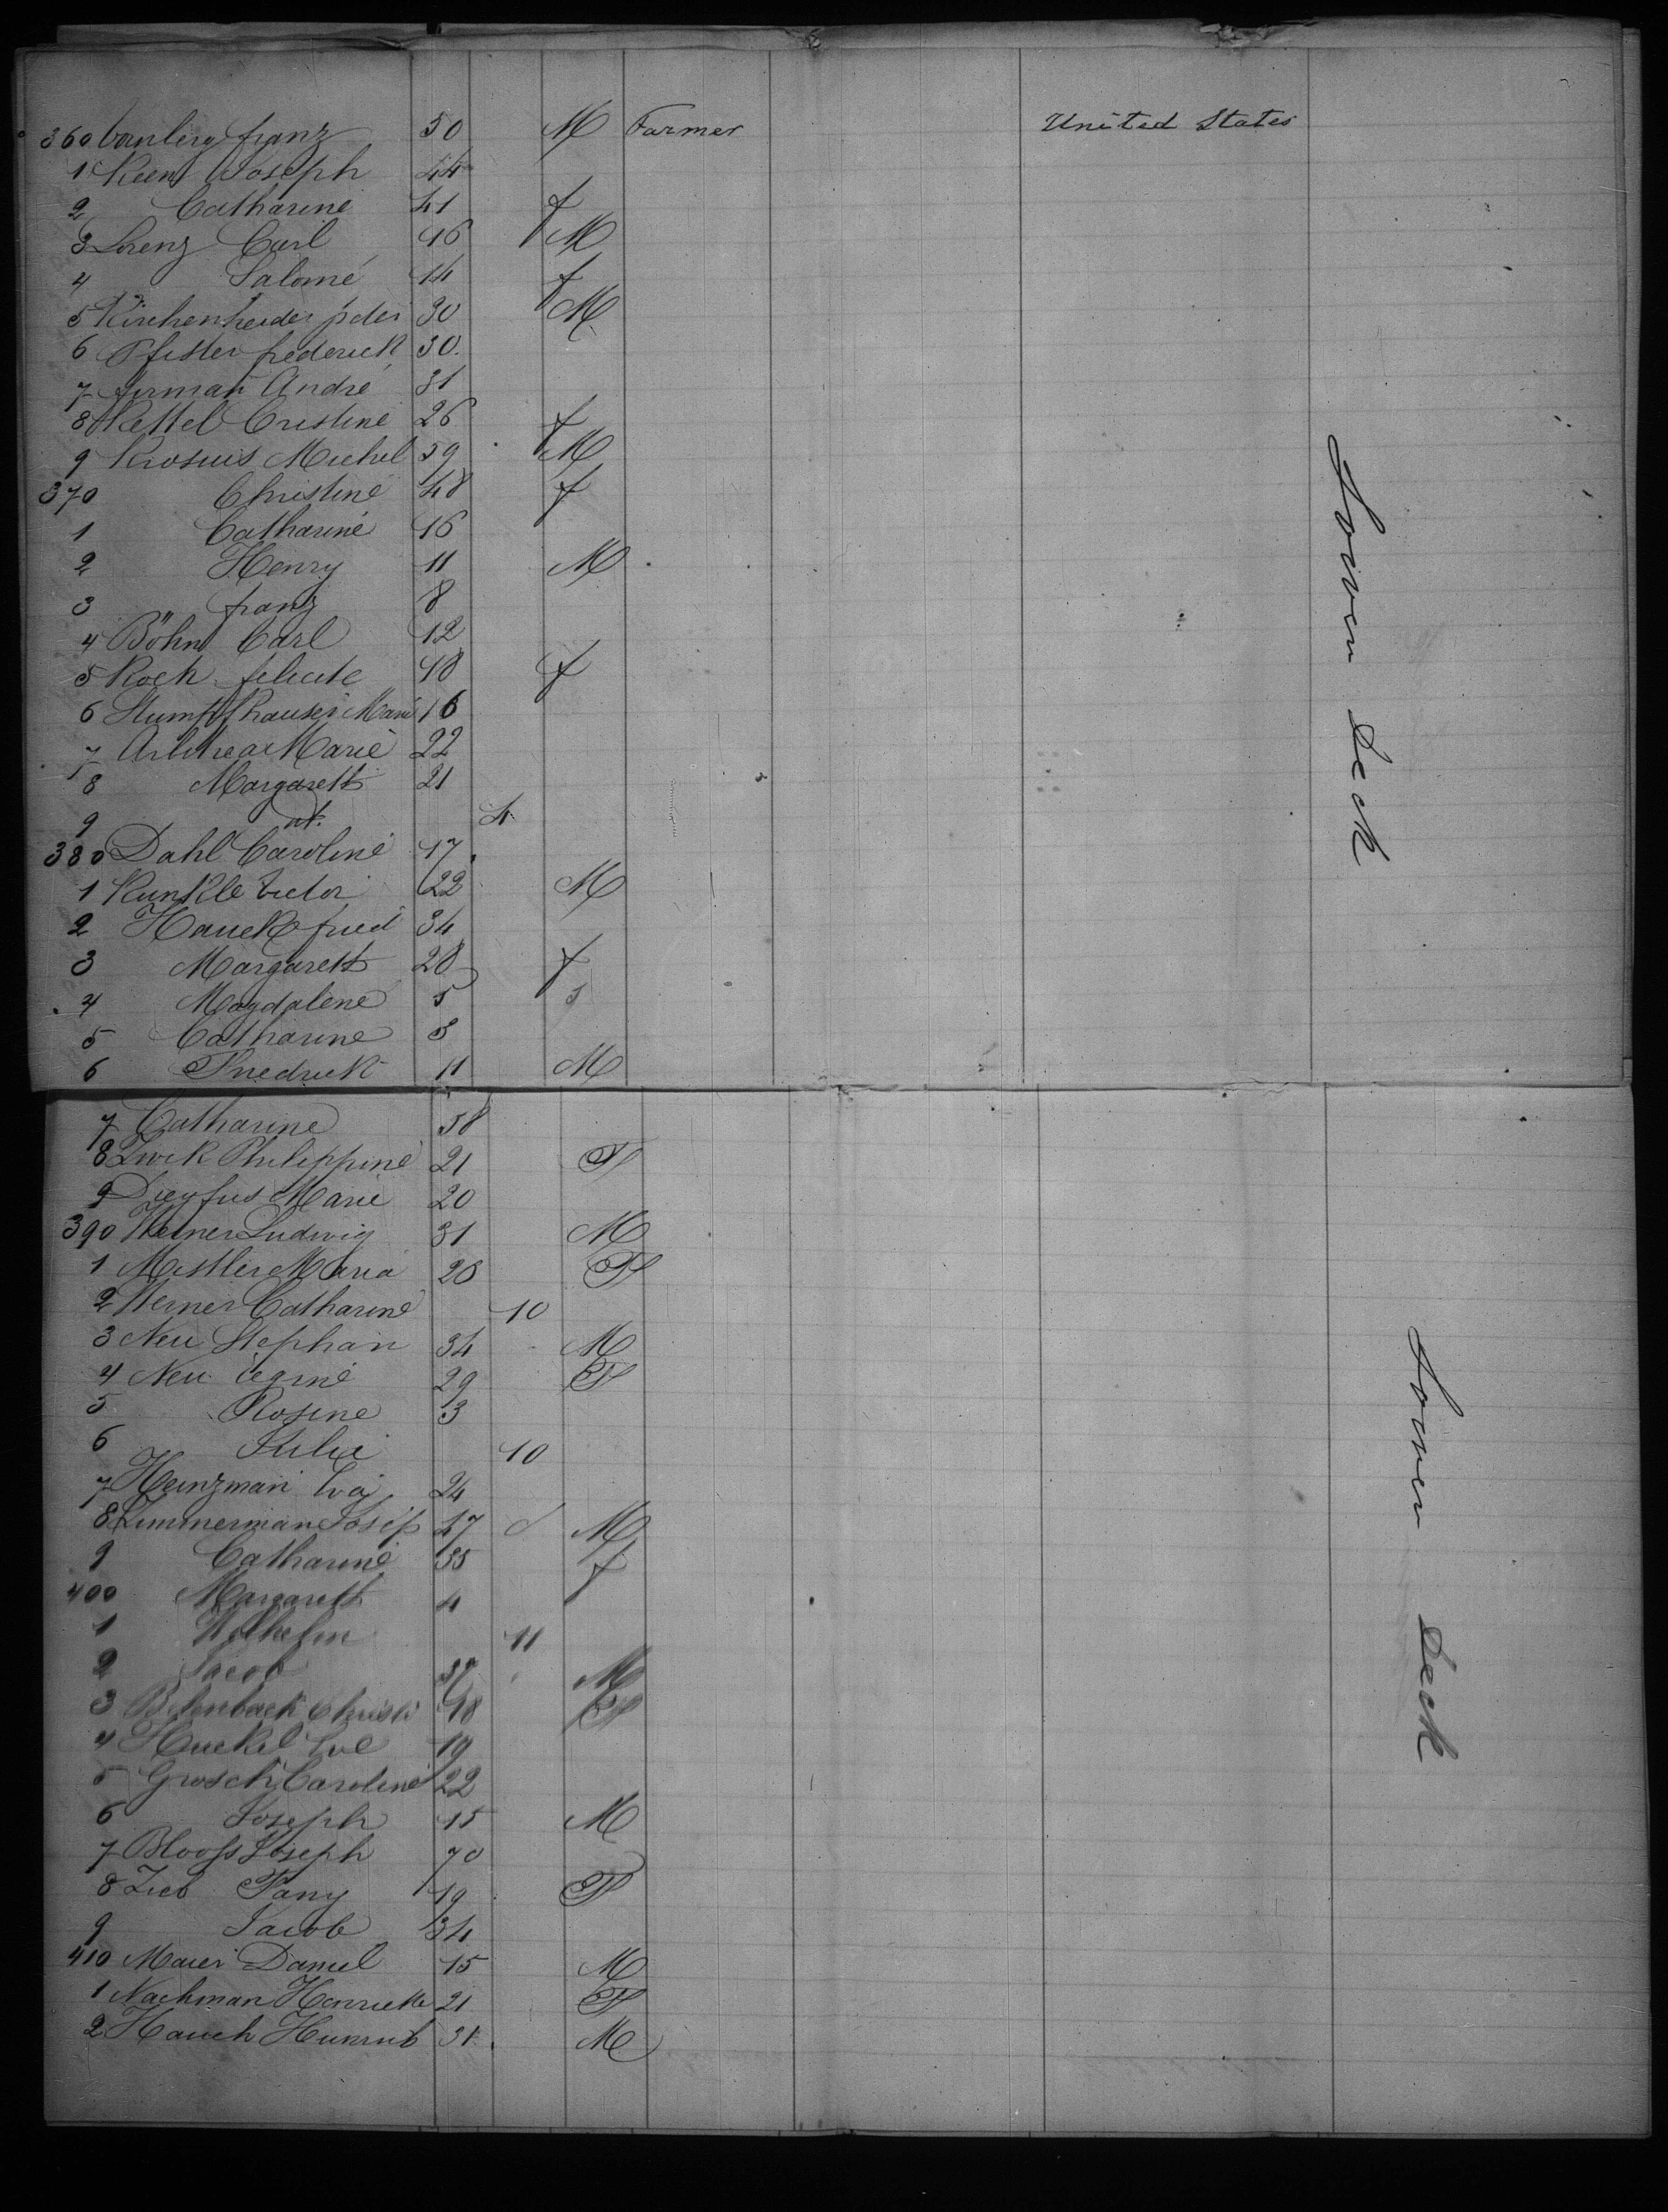 360 franz 50 M Farmer United States
1 Joseph 44
2 Catharine 41 f
3 Lorenz Carl 16 M
4 Salomé 14 f
5 peter 30 M
6 Pfister frederick 30
7 André 31
8 Kettel Cristine 26 f
9 Michel 59 M
370 Christine 48 f
1 Catharine 16
2 Henry 11 M
3 franz 8
4 Böhm Carl 12
5 Koch felicite 18 f
6 Marie 16
7 Marie 22
8 Margareth 21
9 4
380 Dahl Caroline 17
1 Kunkle Victor 22 M
2 Hauck fried 34
3 Margareth 28 f
4 Magdalene 5
5 Catharine 3
6 Friedrick 11 M
7 Catharine 58
8 Zwick Philippine 21 F
9 Dreyfus Marie 20
390 Werner Ludwig 31 M
1 Mistler Maria 26 F
2 Werner Catharine 10
3 Neu Stephan 34 M
4 Neu 29 F
5 Rosine 3
6 10
7 Heinzman Eva 24
8 Zimmerman Josep 47 M
9 Catharine 35 f
400 Margareth 4
1 Wilhelm 11
2 Jacob M
3 Christi 18 F
4 Huckel Eve 19
5 Grosch Caroline 22
6 Joseph 15 M
7 Joseph 70
8 Fany 19 F
9 Jacob 34
410 Maier Daniel 15 M
1 Nachman Henriette 21 F
2 Hauch 31 M
Lower Deck
Lower Deck